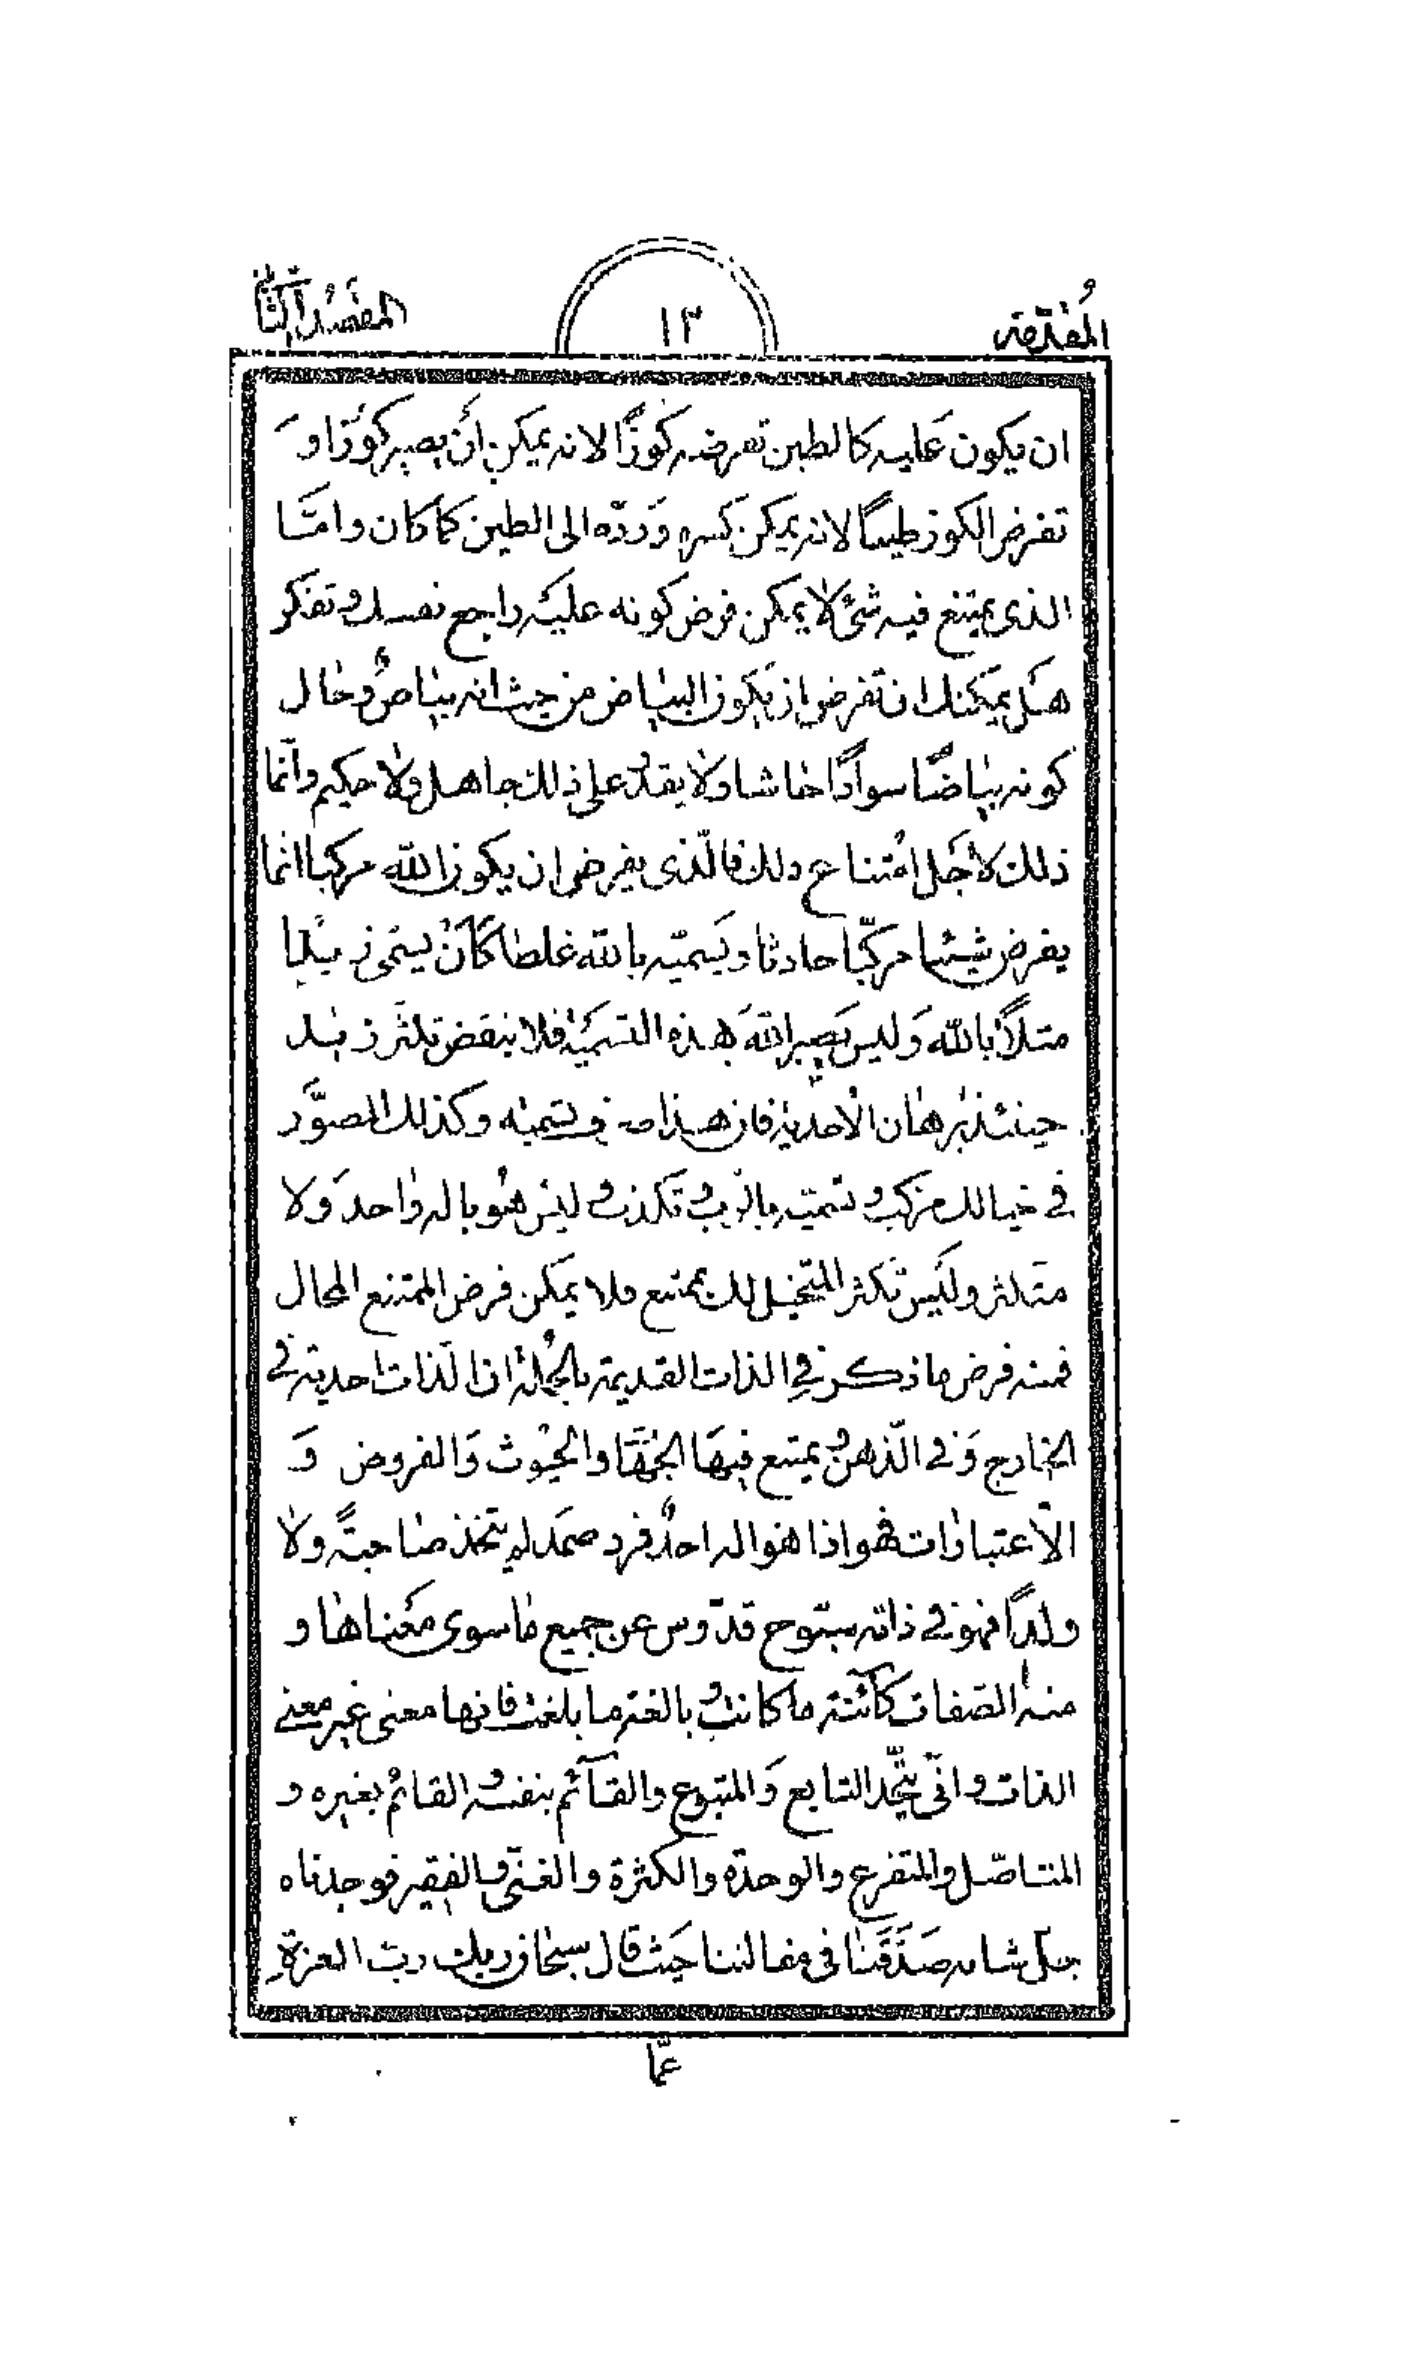 المقدمة ١٣ المقصد الثاني
ان يكون عليه كالطين تفرضه كوزًا لانه يمكن أن يصير كوزا و
تفرض الكوز طينًا لانه يمكن كسره ورده الى الطين كما كان وامّا
الذى يمتنع فيه شئ لا يمكن فرض كونه عليه راجع نفسك وتفكر
هل يمكنك ان تفرض ان يكون البياض من حيث انه بياض وحال
كونه بياضًا سوادًا حاشا ولا يقدر على ذلك جاهل ولا حكيم وانّما
ذلك لاجل امتناع ذلك فالّذى يفرض ان يكون الله مركبا انما
يفرض شيئا مركّبا حادثا ويسميّه بالله غلطا كأن يسمى زيدا
مثلاً بالله وليس يصير الله بهذه التسمية فلا ينقض تكثر زيد
حينئذ برهان الاحدية فان هذا منه تسميته وكذلك المصوَّر
فى خيالك مركب وتسميته بالرب وتكذب ليس هو باله واحد ولا
متكثر وليس تكثر المتخيل لك بممتنع فلا يمكن فرض الممتنع المحال
فمنه فرض ما ذكر فى الذات القديمة بالجملة ان الذات احدية فى
الخارج وفى الّذهن يمتنع فيها الجهات والحيوث والفروض و
الاعتبارات فهو اذا هو اله احدٌ فرد صمد لم يتخذ صاحبةً ولا
ولدًا فهو فى ذاته سبّوح قدّوس عن جميع ما سوى معناها و
منه الصفات كائنة ما كانت بالغة ما بلغت فانها معنى غير معنى
الذات وانّى يتّحد التابع والمتبوع والقائم بنفسه القائم بغيره و
المتاصّل والمتفرع والوحدة والكثرة والغنّى والفقير فوجدناه
جل شانه صدّقنا فى مقالتنا حيث قال سبحان ربك رب العزة
عمّا